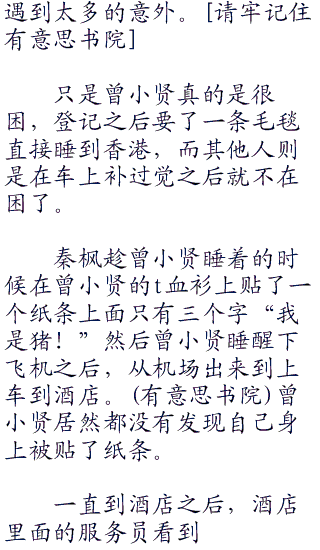 遇到太多的意外。[请牢记住
有意思书院]
只是曾小贤真的是很
困，登记之后要了一条毛毯
直接睡到香港，而其他人则
是在车上补过觉之后就不在
困了。
秦枫趁曾小贤睡着的时
候在曾小贤的t血衫上贴了一
个纸条上面只有三个字“我
是猪！”然后曾小贤睡醒下
飞机之后，从机场出来到上
车到酒店。(有意思书院)曾
小贤居然都没有发现自己身
上被贴了纸条。
一直到酒店之后，酒店
里面的服务员看到